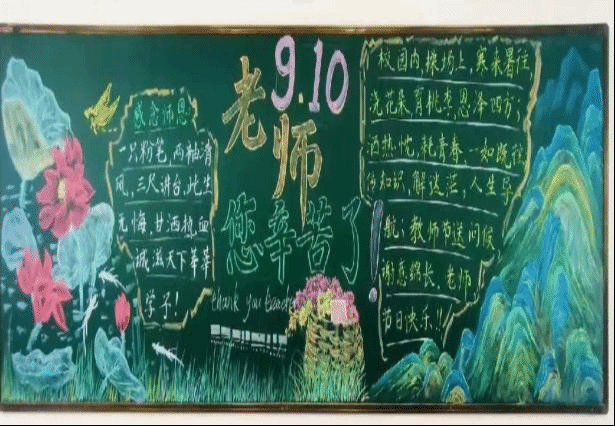 感念师恩
一只粉笔，两袖清
风，三尺讲台，此生
无悔，甘洒热血
诚滋天下莘莘
学子！
9.10
老师
您辛苦了！
thank you teacher
校园内，操场上，寒来暑往，
浇花朵，育桃李，恩泽四方；
洒热忱，耗青春，一如既往
传知识，解迷茫，人生导
航；教师节送问候
谢恩绵长，老师，
节日快乐！!!